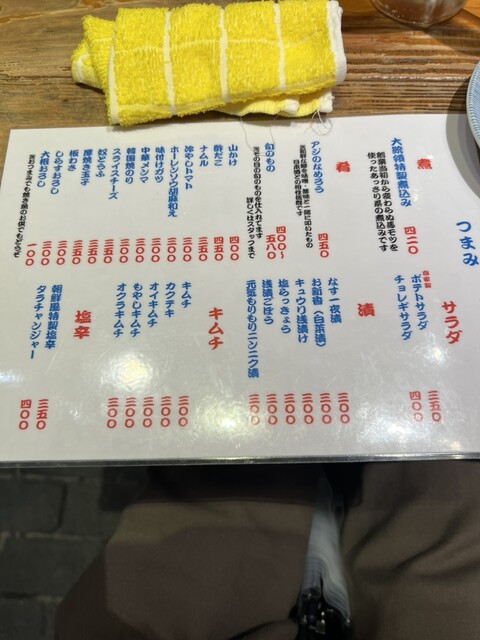 つまみ
煮
大統領特製煮込み 四二〇
創業当初から変わらぬ馬モツを
使ったあっさり系の煮込みです
肴
アジのなめろう 四五〇
新鮮な鯵を味噌・薬味と一緒に叩いたもの
日本酒との相性抜群です
旬のもの 四〇〇〜五八〇
その日の旬のものを仕入れてます
詳しくはスタッフまで
山かけ 四〇〇
酢だこ 四五〇
ナムル 三五〇
冷やしトマト 三〇〇
ホーレンソウ胡麻和え 三〇〇
味付けガツ
中華メンマ
韓国焼のり
スライスチーズ
奴どうふ
厚焼き玉子
板わさ
しらすおろし 三〇〇
大根おろし 一〇〇
サラダ
自家製
ポテトサラダ 三五〇
チョレギサラダ 四〇〇
漬
なす一夜漬 三〇〇
お新香(白菜漬) 三〇〇
キュウリ浅漬け 三〇〇
塩らっきょう 三〇〇
浅漬ごぼう 三〇〇
元気もりもりニンニク漬 三〇〇
キムチ
キムチ 三〇〇
カクテキ 三〇〇
オイキムチ 三〇〇
もやしキムチ 三〇〇
オクラキムチ 三〇〇
塩辛
朝鮮風特製塩辛 三五〇
タラチャンジャー 四〇〇